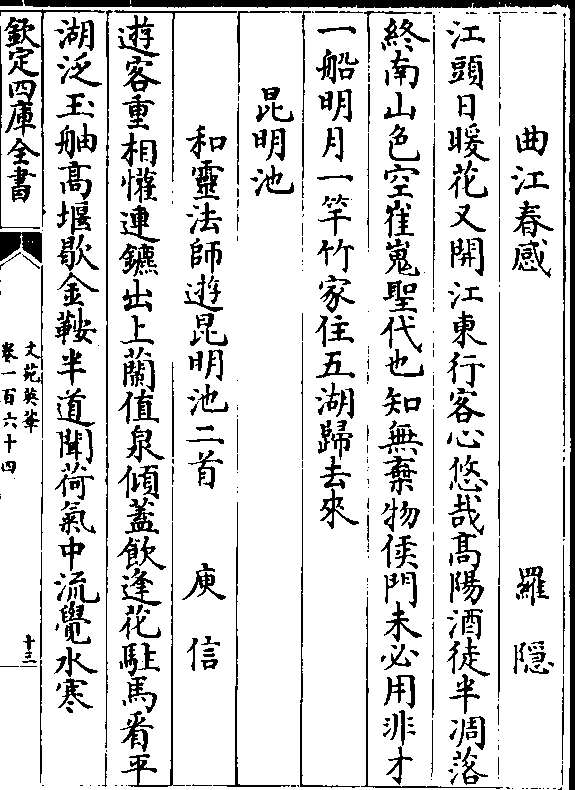 曲江春感 羅隠
江頭日暖花又開江東行客心悠哉髙陽酒徒半凋落
終南山色空崔嵬聖代也知無棄物侯門未必用非才
一船明月一竿竹家住五湖歸去來
昆明池
和靈法師遊昆明池二首 庾信
遊客重相懽連鑣出上蘭值泉傾蓋飲逢花駐馬看平
湖泛玉舳髙堰歇金鞍半道聞荷氣中流覺水寒
欽定四庫全書
文苑英華
卷一百六十四
十三